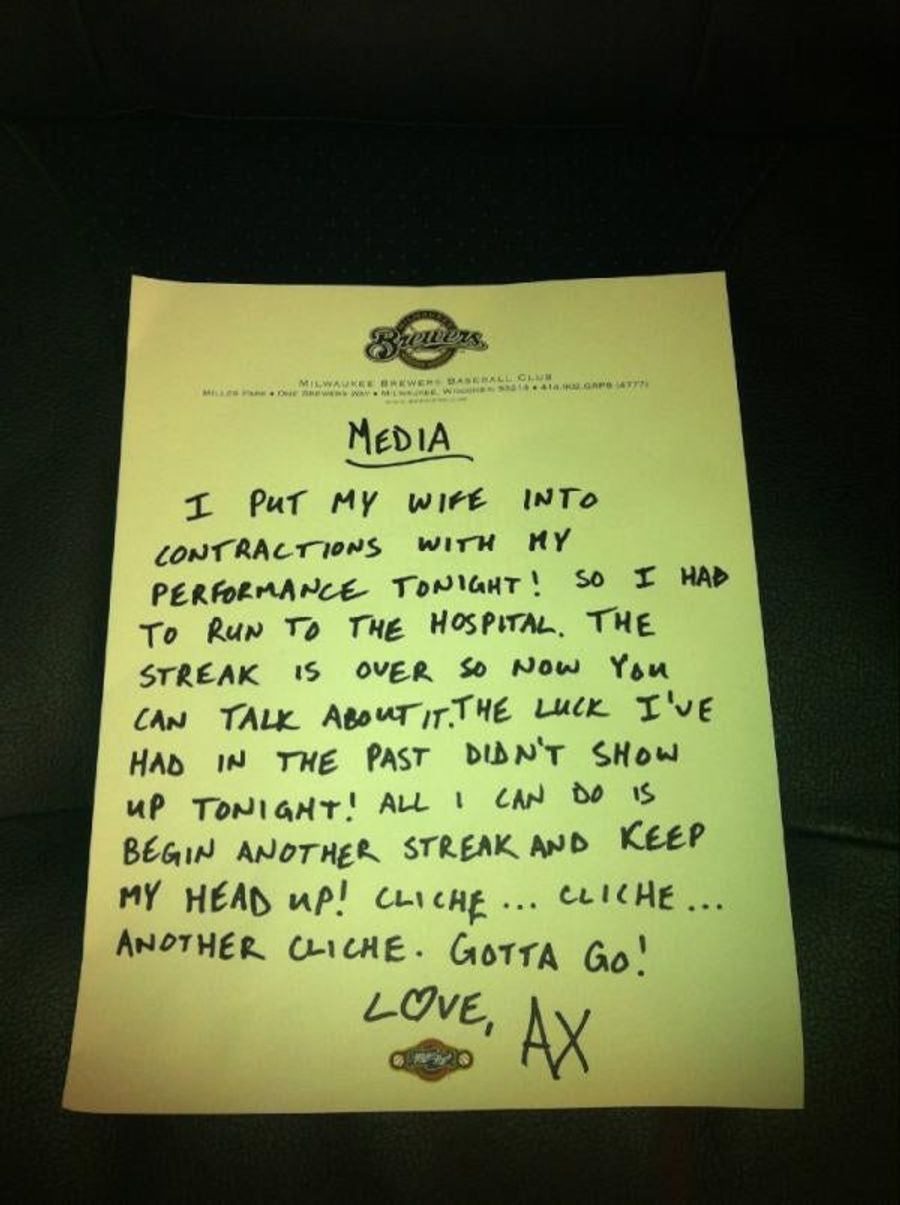 Brewers
MILWAUKEE BREWERS BASEBALL CLUB
MILLER PARK • ONE BREWERS WAY • MILWAUKEE, WISCONSIN 53214 • 414.902.GRPS (4777)
MEDIA
I PUT MY WIFE INTO
CONTRACTIONS WITH MY
PERFORMANCE TONIGHT! SO I HAD
TO RUN TO THE HOSPITAL. THE
STREAK IS OVER SO NOW YOU
CAN TALK ABOUT IT. THE LUCK I'VE
HAD IN THE PAST DIDN'T SHOW
UP TONIGHT! ALL I CAN DO IS
BEGIN ANOTHER STREAK AND KEEP
MY HEAD UP! CLICHE ... CLICHE ...
ANOTHER CLICHE. GOTTA GO!
LOVE, AX